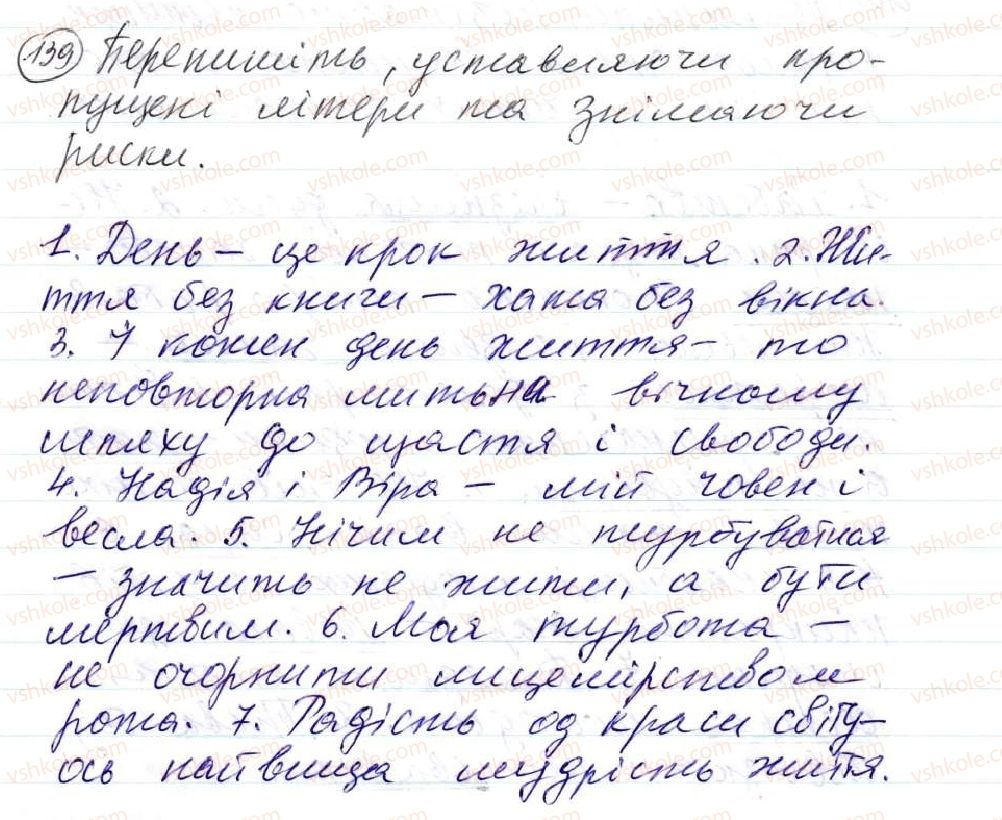 139 Перепишіть, уставляючи про-
пущені літери та знімаючи
риски.
1. День – це крок життя. 2. Жи-
ття без книги – хата без вікна.
3. І кожен день життя – то
неповторна мить на вічному
шляху до щастя і свободи.
4. Надія і Віра – мій човен і
весла. 5. Нічим не турбуватися
– значить не жити, а бути
мертвим. 6. Моя турбота –
не очорнити лицемірством
рота. 7. Радість од краси світу –
ось найвища мудрість життя.